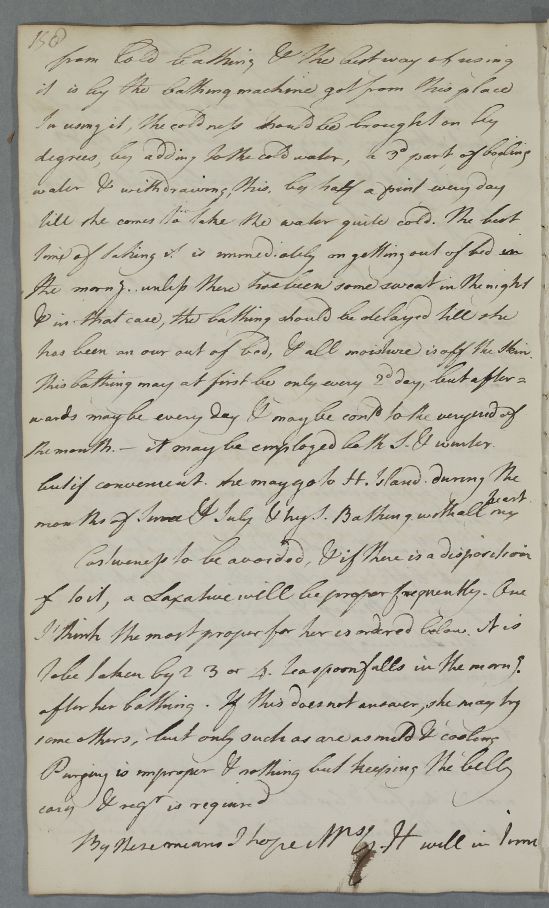 158
from Cold bathing & the best way of using
it is by the bathing machine got from this place
In using it, the coldness should be brought on by
degrees, by adding to the cold water, a 3d part of boiling
water & withdrawing this by half a pint every day
till she comes to take the water quite cold. The best
time of taking it is immediately on getting out of bed in
the morng. unless there has been some sweat in the night
& in that case, the bathing should be delayed till she
has been an our out of bed, & all moisture is off the skin.
This bathing may at first be only every 2d day, but after=
wards may be every day & may be contd to the very end of
the month. – it may be employed both S. & winter.
but if convenient she may go to H. Island during the
months of June & July & try S. Bathing with all my heart
Costiveness to be avoided, & if there is a disposition
to it, a Laxative will be proper frequently. One
I think the most proper for her is ordered below. It is
to be taken by 2 3 or 4 teaspoonfulls in the morng.
after her bathing. If this does not answer, she may try
some others, but only such as are as mild & cooling
Purging is improper & nothing but keeping the belly
easy & regr is required
By these means I hope Mrs H will in time